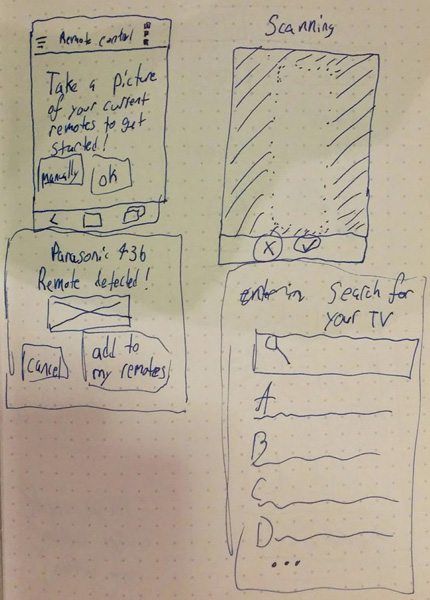 Remote control
Take a picture
of your current
remotes to get
started!
manually
OK
Scanning
X
Panasonic 436
Remote detected!
cancel
add to
my remotes
Search for
your TV
A
B
C
D
...